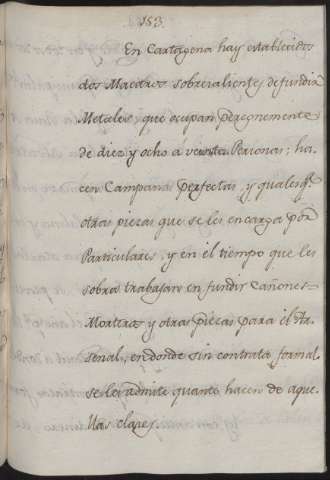 153.
En Cartagena hay establecidos
dos Maestros sobresalientes de fundir
Metales, que ocupan perennemente
de diez y ocho a veinte Personas; ha-
cen Campanas perfectas, y qualesq.ª
otras piezas que se les encarga por
Particulares, y en el tiempo que les
sobra trabajan en fundir cañones
Morteros y otras piezas para el Ar-
senal, en donde sin contrata formal
se les admite quanto hacen de aque-
llas clases.